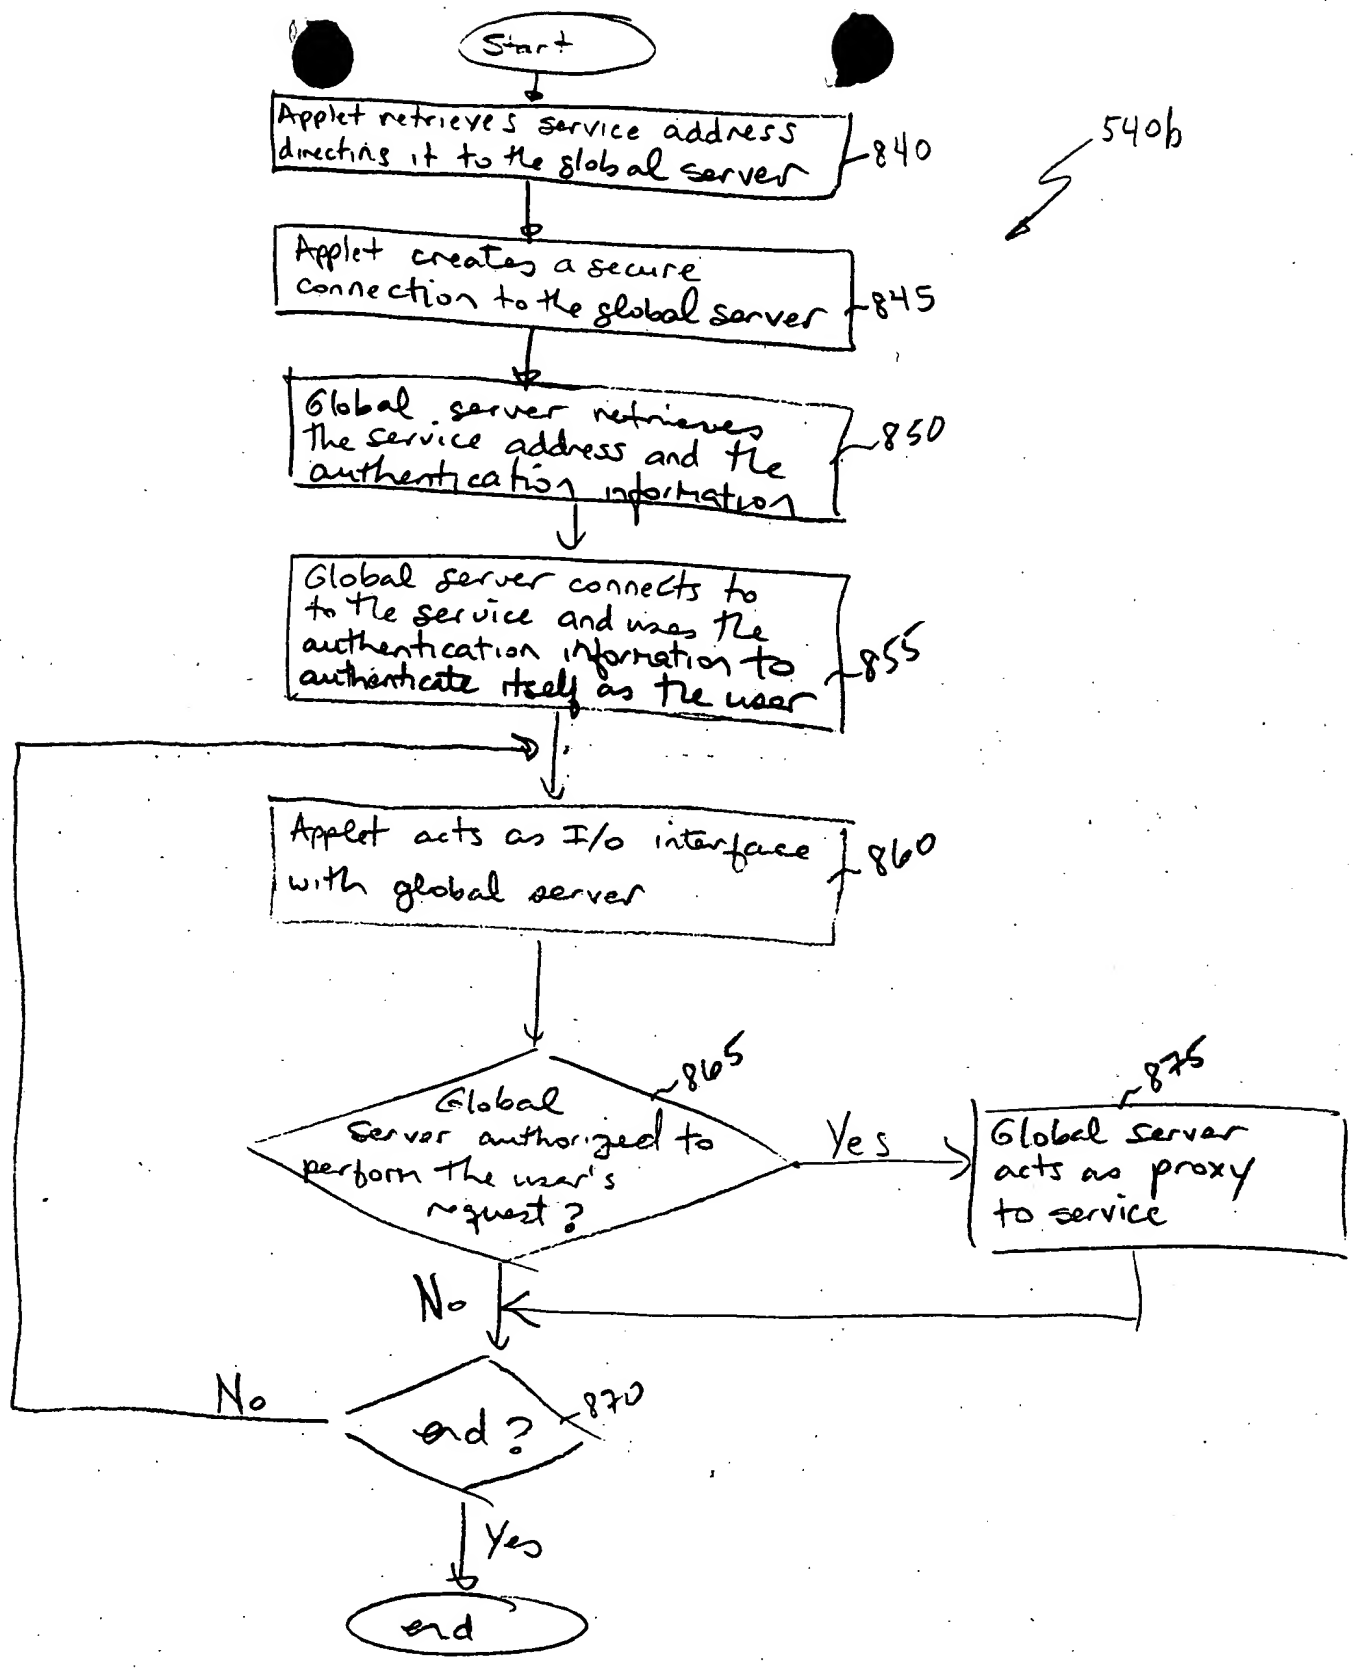 Start
Applet retrieves service address
directing it to the global server
840
540b
Applet creates a secure
connection to the global server
845
Global server retrieves
the service address and the
authentication information
850
Global server connects to
to the service and uses the
authentication information to
authenticate itself as the user
855
Applet acts as I/o interface
with global server
860
865
Global
server authorized to
perform the user's
request?
Yes
875
Global server
acts as proxy
to service
No
No
end?
870
Yes
end